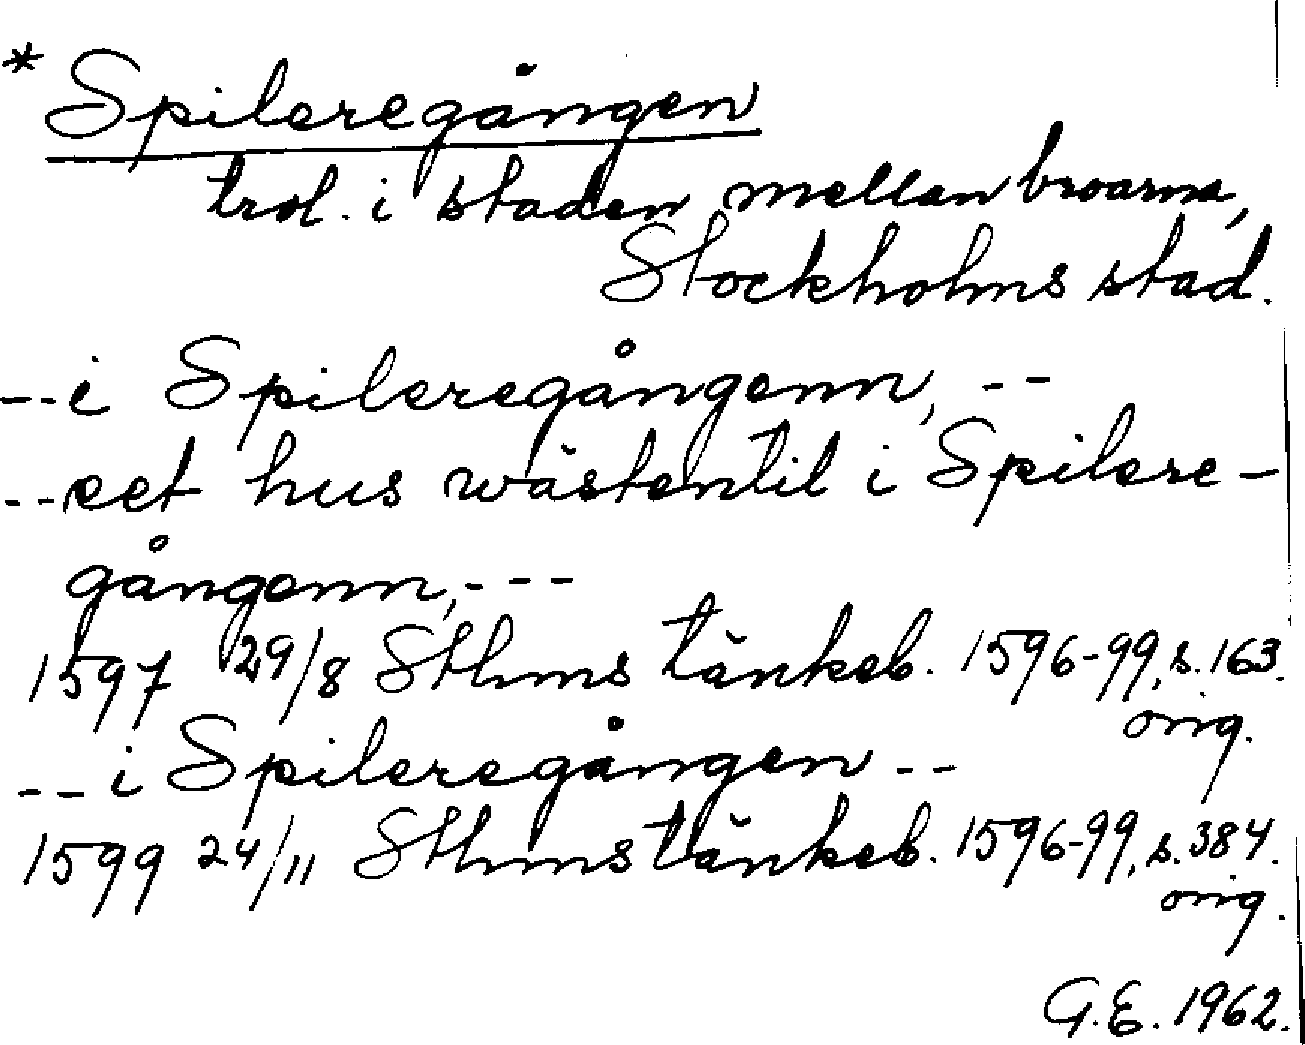 * Spileregången
trol. i staden mellan broarna,
Stockholms stad.
--i Spileregångenn, --
--eet hus wästentil i Spilere-
gångenn,---
1597 29/8 Sthms tänkeb. 1596-99, s. 163.
orig.
-- i Spileregången --
1599 24/11 Sthms tänkeb. 1596-99, s. 384.
orig.
G.E. 1962.